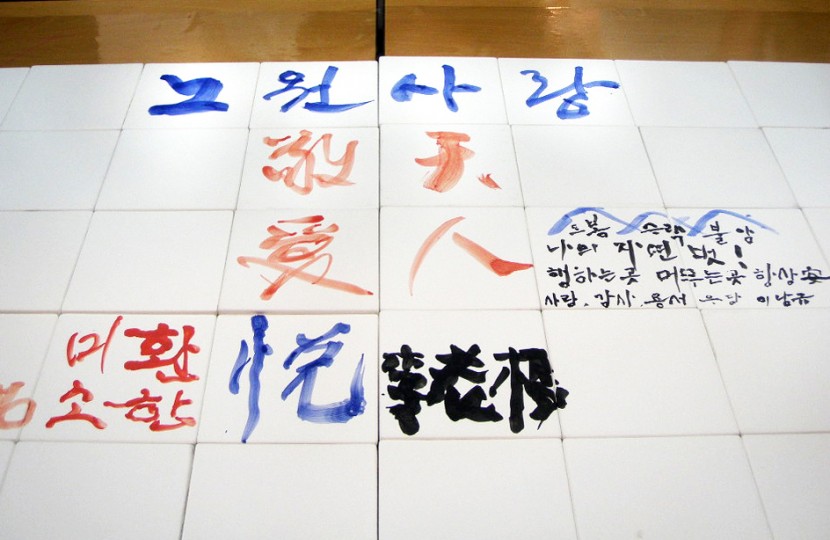 노원사랑
敬天
愛人
도봉 수락 불암
나의 자연 벗!
행하는 곳 머무는 곳 항상 安
사랑. 감사. 용서 이남규
환한
미소
悅
李老根